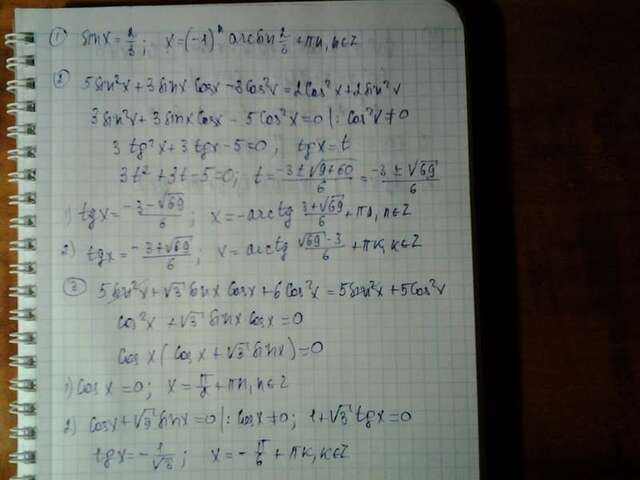 ① sin x = 2/3; x = (-1)ⁿ arcsin 2/3 + πn, n∈Z
② 5 sin²x + 3 sinx cosx - 3cos²x = 2cos²x + 2sin²x
3 sin²x + 3 sinx cosx - 5 cos²x = 0 |: cos²x ≠ 0
3 tg²x + 3 tgx - 5 = 0, tgx = t
3t² + 3t - 5 = 0; t = (-3 ± √(9+60))/6 = (-3 ± √69)/6
1) tgx = (-3-√69)/6; x = -arctg (3+√69)/6 + πn, n∈Z
2) tgx = (-3+√69)/6; x = arctg (√69-3)/6 + πk, k∈Z
③ 5 sin²x + √3 sinx cosx + 6 cos²x = 5 sin²x + 5 cos²x
cos²x + √3 sinx cosx = 0
cos x (cos x + √3 sinx) = 0
1) cos x = 0; x = π/2 + πn, n∈Z
2) cosx + √3 sinx = 0 |: cosx ≠ 0; 1 + √3 tgx = 0
tgx = -1/√3; x = -π/6 + πk, k∈Z